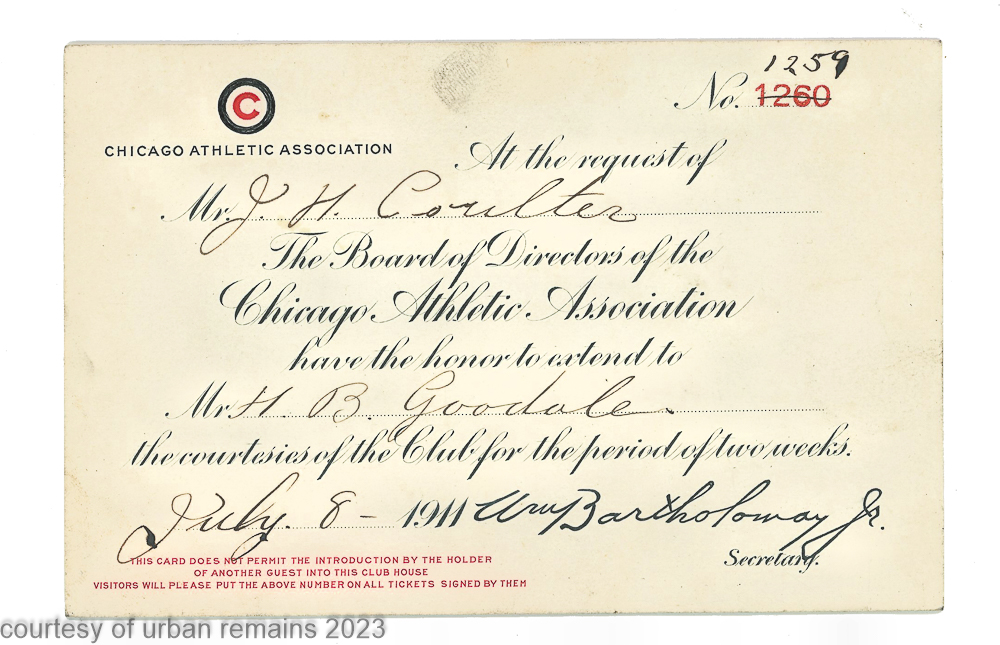 1259
No. 1260
C
CHICAGO ATHLETIC ASSOCIATION
At the request of
Mr. J. H. Coulter
The Board of Directors of the
Chicago Athletic Association
have the honor to extend to
Mr. H. B. Goodale.
the courtesies of the Club for the period of two weeks.
July. 8 - 1911 Wm Bartholomay Jr.
Secretary.
THIS CARD DOES NOT PERMIT THE INTRODUCTION BY THE HOLDER
OF ANOTHER GUEST INTO THIS CLUB HOUSE
VISITORS WILL PLEASE PUT THE ABOVE NUMBER ON ALL TICKETS SIGNED BY THEM
courtesy of urban remains 2023